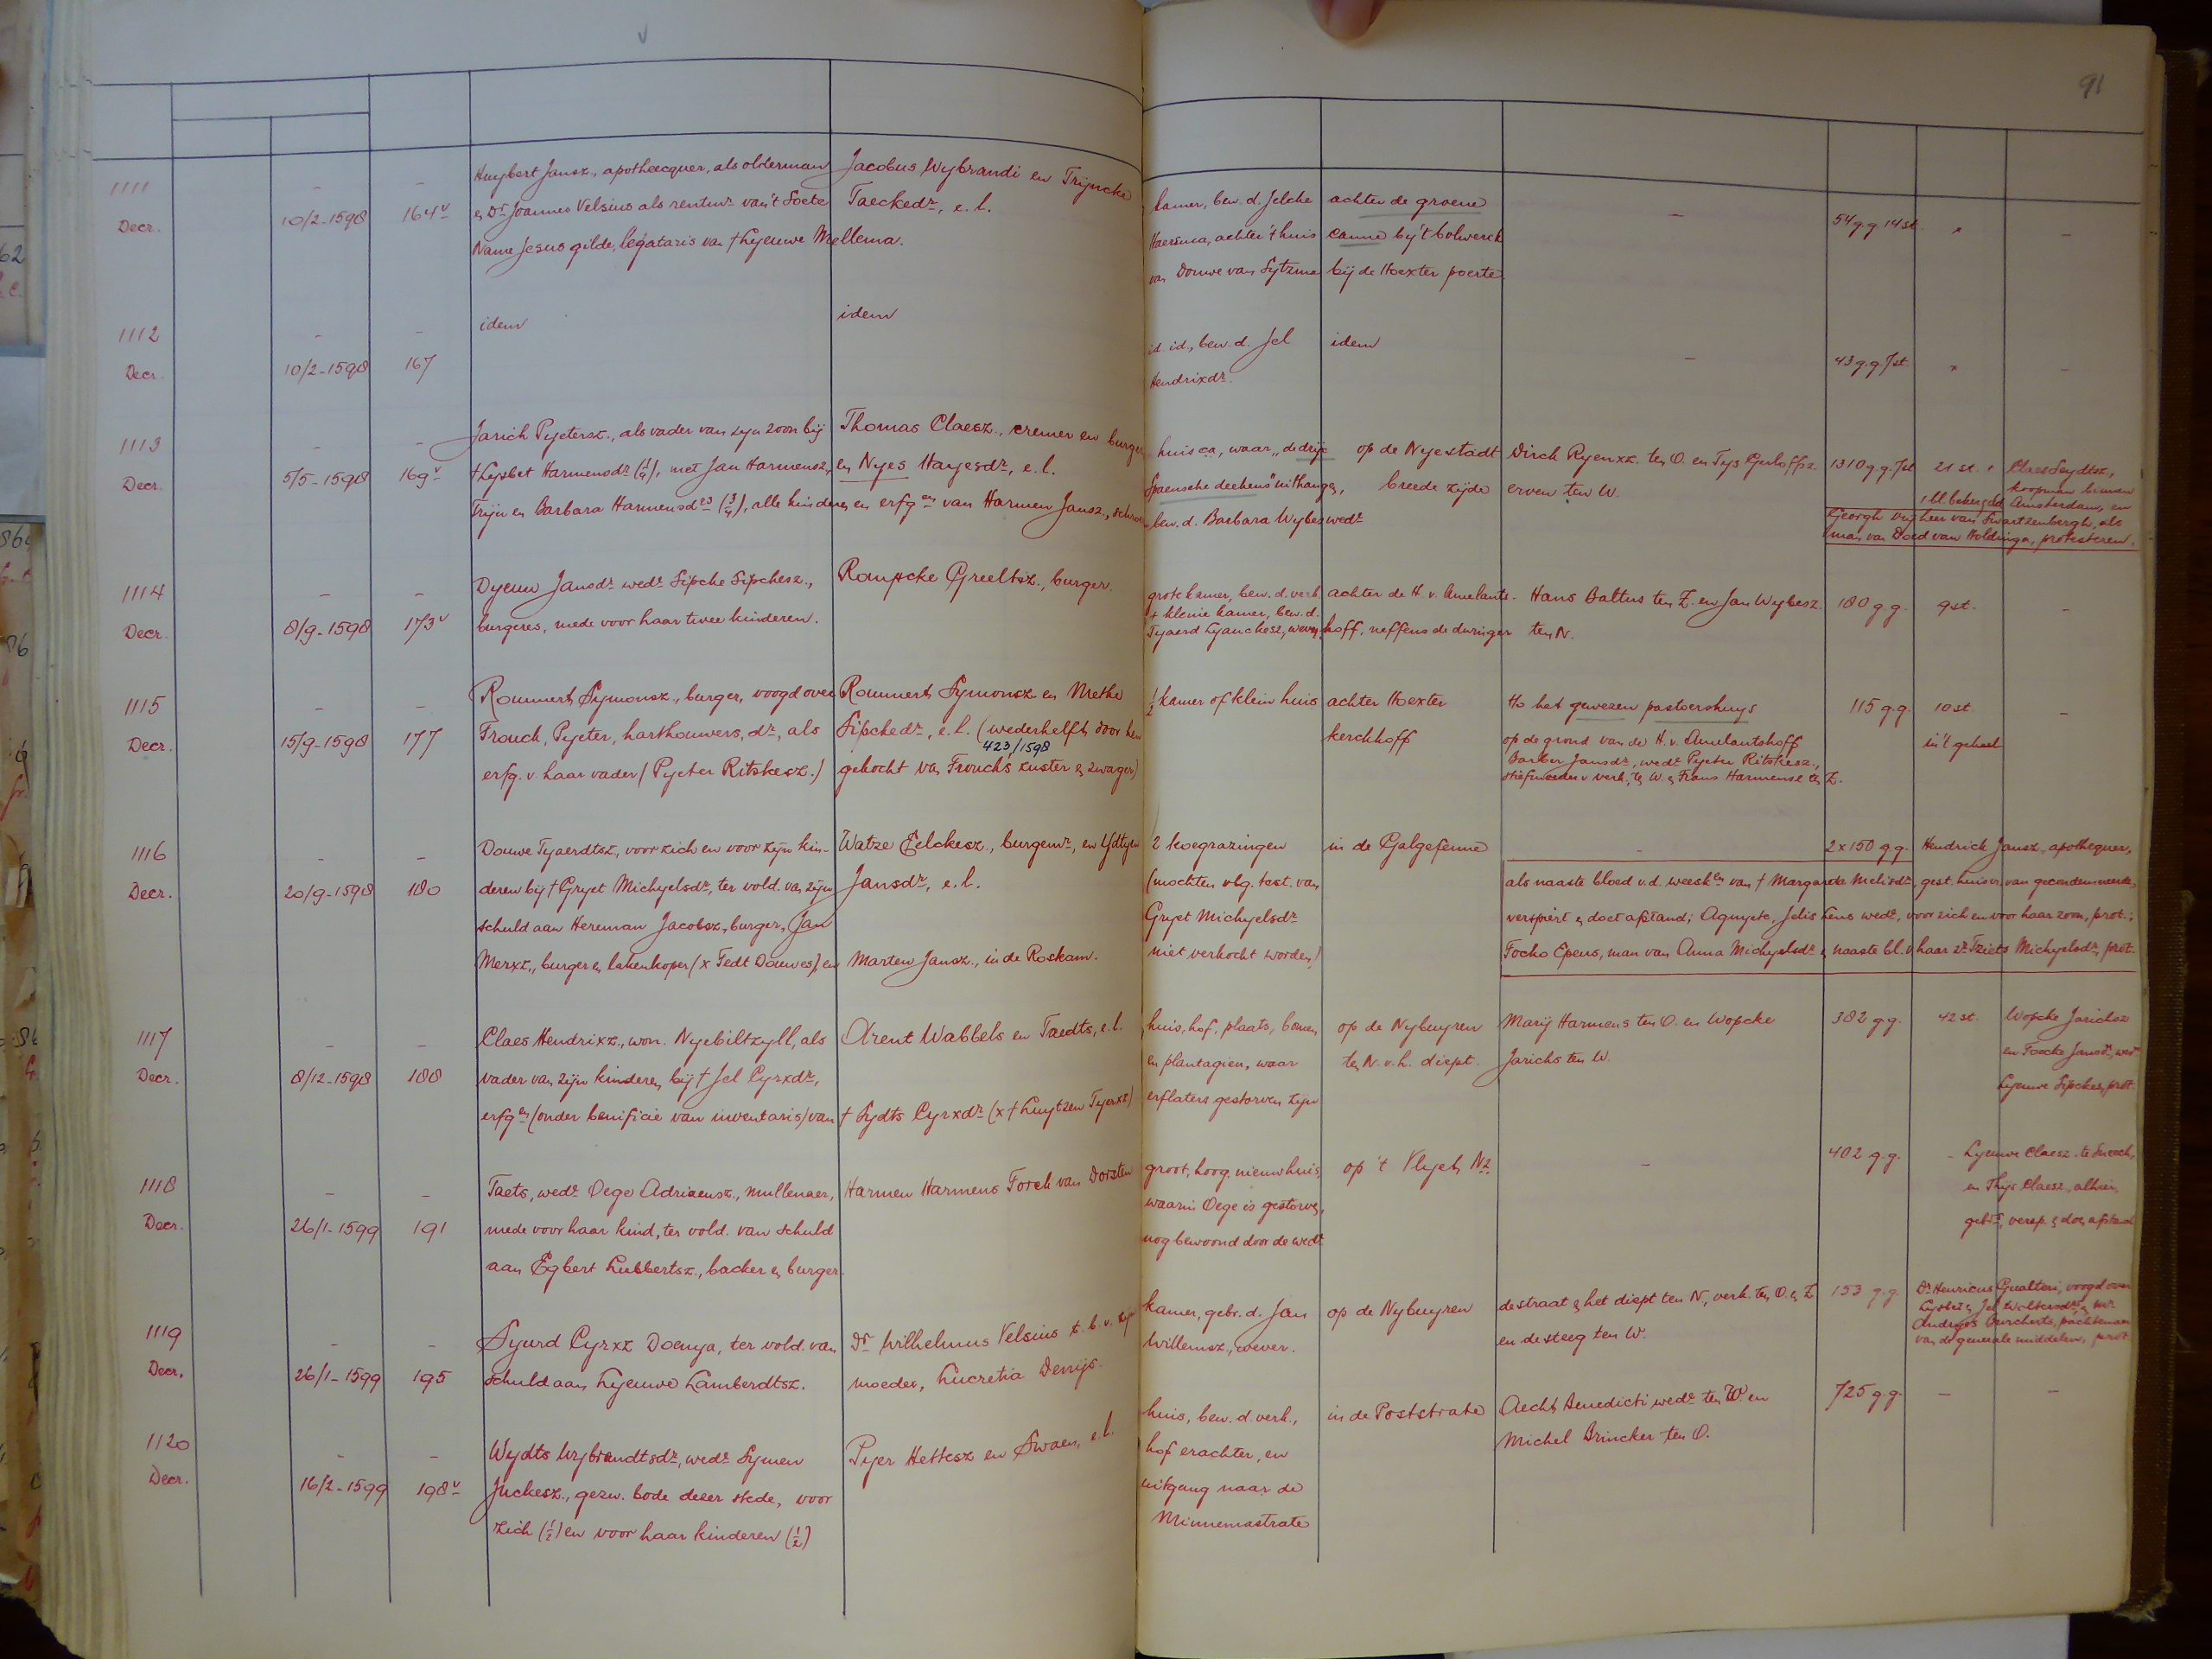 91
1111
Decr.
-
10/2-1598
-
164v
Huybert Jansz., apotheecquer, als olderman
en Dr Joannes Velsius als rentmr van 't Soete
Name Jesus gilde, legataris van † Lyeuwe Mellema.
Jacobus Wybrandi en Trijncke
Taeckedr, e.l.
kamer, bew. d. Jelcke
Haersma, achter 't huis
van Douwe van Sytzma
achter de groene
canne bij 't bolwerck
bij de Hoexter poorte
-
54 g.g. 14 st.
-
1112
Decr.
-
10/2-1598
-
167
idem
idem
id. id., bew. d. Jel
Hendrixdr.
idem
-
43 g.g. 7 st.
-
1113
Decr.
-
5/5-1598
-
169v
Jarich Pyetersz., als vader van zijn zoon bij
† Lysbet Harmensdr (1/4), met Jan Harmensz,
Trijn en Barbara Harmensdrs (3/4), alle kinderen en erfgen van Harmen Jansz.,
Thomas Claesz., cremer en burger
en Nyes Hayesdr, e.l.
huis ca, waar "de drije
Spaensche deekens" uithangen,
bew. d. Barbara Wybes wedr
op de Nyestadt
breede zijde
Dirck Ryenxz. ten O. en Tys Gerloffsz.
erven ten W.
1310 g.g. 7 st
21 st.
Claes Seydtsz,
koopman binnen
Amsterdam, en
Georgh vryheer van Swartzenbergh, als
man van Doed van Holdinga, protesteren.
1114
Decr.
-
8/9-1598
-
173v
Dyeuw Jansdr wedr Sipcke Sipckesz.,
burgeres, mede voor haar twee kinderen.
Rompcke Greeltsz., burger.
grote kamer, bew. d. verk.
+ kleine kamer, bew. d.
Tyaerd Lyanckesz, wever,
achter de H. v. Amelants-
hoff, neffens de dwinger
Hans Baltus ten Z. en Jan Wybesz.
ten N.
180 g.g.
9 st.
-
1115
Decr.
-
15/9-1598
-
177
Rommert Symonsz., burger, voogd over
Trouck, Pyeter, harthouwers, dr, als
erfg. v. haar vader (Pyeter Ritskesz.)
Rommert Symonsz en Methe
Sipckedr, e.l. (wederhelft door hen
423/1598
gekocht van Troucks zuster en zwager)
1/2 kamer of klein huis
achter Hoexter
kerckhoff
Ho het gewezen pastoershuys
op de grond van de H. v. Amelantshoff
Barber Jansdr, wedr Pyeter Ritskesz.,
stiefmoeder v verk., ten W. en Frans Harmensz ten Z.
115 g.g.
10 st.
in 't geheel
-
1116
Decr.
-
20/9-1598
-
180
Douwe Tyaerdtsz., voor zich en voor zijn kin-
deren bij † Gryet Michyelsdr, ter vold. van zijn
schuld aan Hereman Jacobsz., burger, Jan
Merxz., burger en lakenkoper (x Tedt Douwes), en Marten Jansz., in de Roskam.
Watze Eelckesz., burgemr, en Ydtyen
Jansdr, e.l.
2 koegrazingen
(mochten vlg. test. van
Gryet Michyelsdr
niet verkocht worden!
in de Galgefenne
-
2 x 150 g.g.
Hendrick Jansz., apothequer,
als naaste bloed v.d. weesken van † Margareta Melisdr, gest. huisvr. van gecondemneerde,
verspiert en doet afstand; Agnyete, Jelis Lens wedr, voor zich en voor haar zoon, prot.;
Focko Epeus, man van Anna Michyelsdr en naaste bl. v. haar zr Tziets Michyelsdr, prot.
1117
Decr.
-
8/12-1598
-
188
Claes Hendrixz., won. Nyebiltzyll, als
vader van zijn kinderen bij † Jel Cyrxdr,
erfgen (onder benificie van inventaris) van † Sydts Cyrxdr (x † Luytzen Tyerxz)
Arent Wabbels en Taedts, e.l.
huis, hof, plaats, bomen,
en plantagien, waar
erflaters gestorven zijn
op de Nybuyren
ten N. v.h. diept.
Marij Harmens ten O. en Wopcke
Jarichs ten W.
382 g.g.
42 st.
Wopcke Jarichsz
en Foecke Jansdr, wedr
Lyeuwe Sipckes, prot.
1118
Decr.
-
26/1-1599
-
191
Taets, wedr Oege Adriaensz., mullenaer,
mede voor haar kind, ter vold. van schuld
aan Egbert Lubbertsz., backer en burger.
Harmen Harmens Forck van Dorsten
groot, hoog, nieuw huis,
waarin Oege is gestorven,
nog bewoond door de wedr
op 't Vlyet, Nz
-
402 g.g.
-
Lyeuwe Claesz. te Sneeck,
en Thijs Claesz., alhier,
gebrs, versp. en doen afstand
1119
Decr.
-
26/1-1599
-
195
Syurd Cyrxz Doenya, ter vold. van
schuld aan Lyeuwe Lamberdtsz.
Dr Wilhelmus Velsius t.b.v. zijn
moeder, Lucretia Denijs.
kamer, gebr. d. Jan
Willemsz., wever.
op de Nybuyren
de straat en het diept ten N., verk. ten O. en Z
en de steeg ten W.
153 g.g.
Dr Henricus Gualteri, voogd over
Lysbet en Jel Woltersdrs, en mr
Andries Burcherts, pachtenaer
van de generale middelen, prot.
1120
Decr.
-
16/2-1599
-
198v
Wydts Wybrandtsdr, wedr Symen
Juckesz., gezw. bode dezer stede, voor
zich (1/2) en voor haar kinderen (1/2)
Pyer Hettesz en Swaen, e.l.
huis, bew. d. verk.,
hof erachter, en
uitgang naar de
Minnemastrate
in de Poststrate
Aecht, Benedicti wedr ten W. en
Michel Brincker ten O.
725 g.g.
-
-